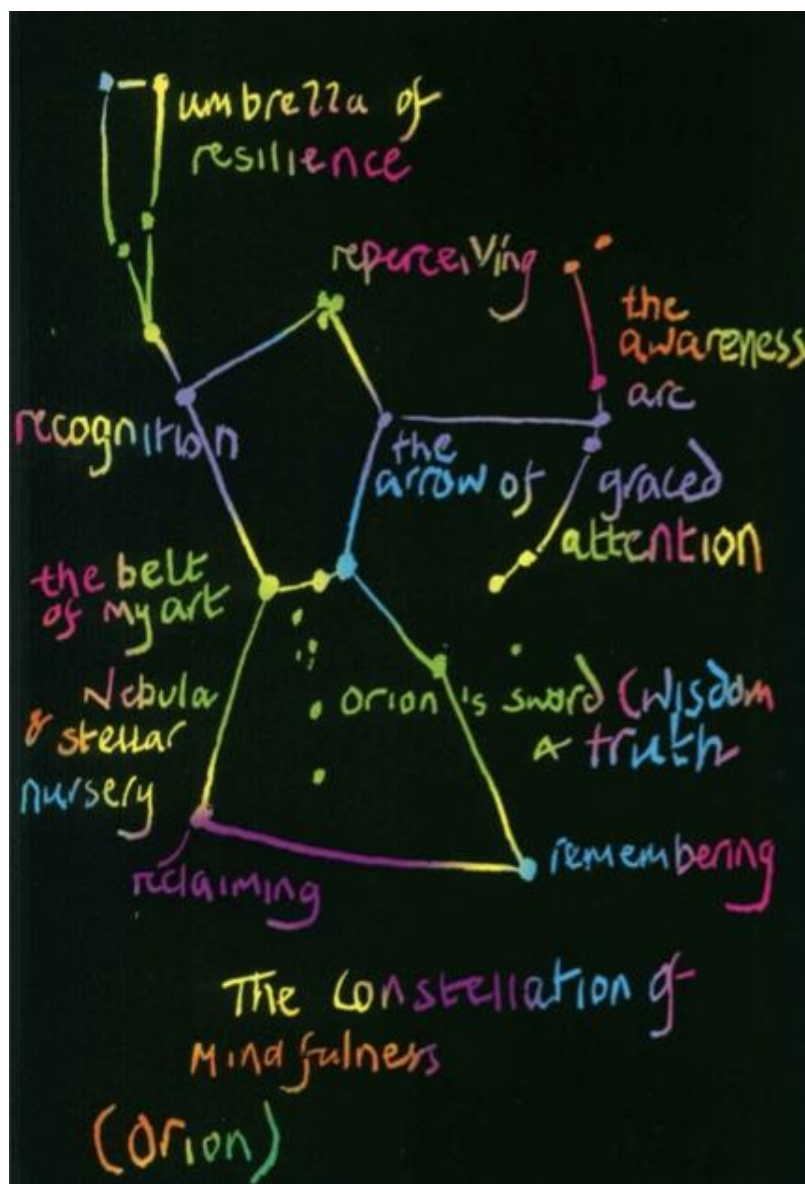 umbrella of
resilience
reperceiving
the
awareness
arc
recognition
the
arrow of
graced
attention
the belt
of my art
Nebula
& stellar
nursery
orion's sword (wisdom
& truth
reclaiming
remembering
The constellation of
Mindfulness
(Orion)